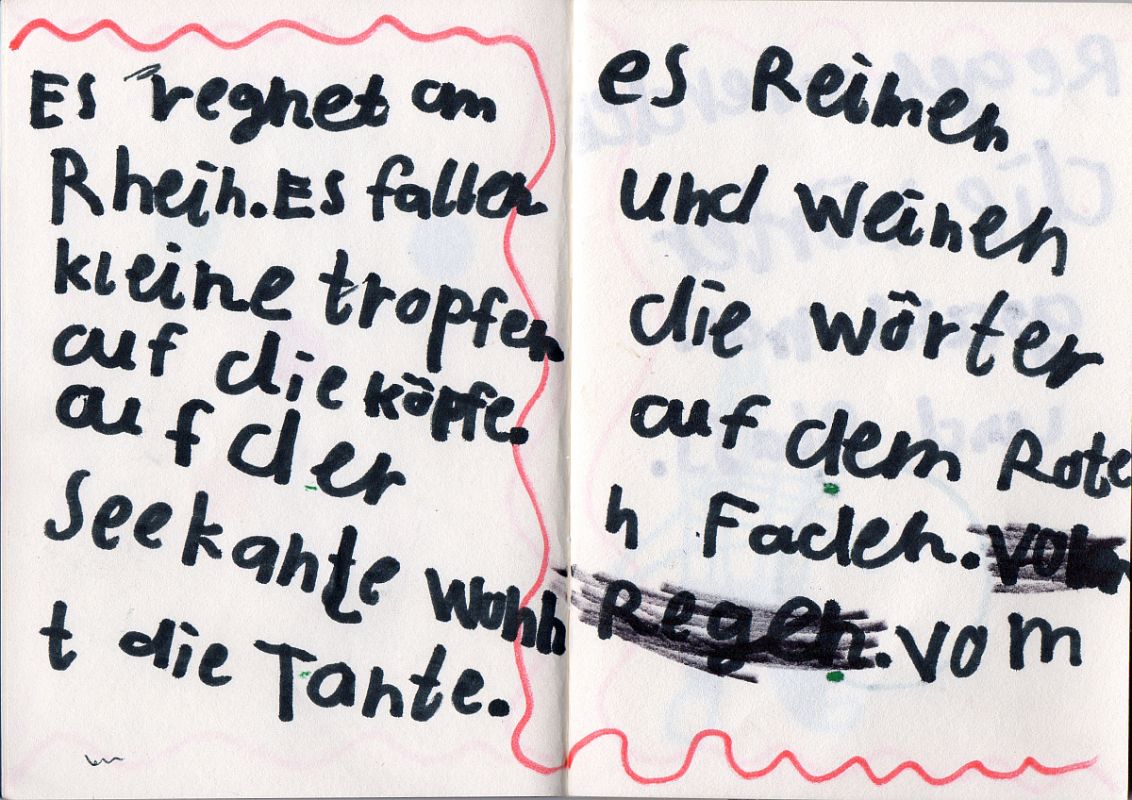 ES regnet am
Rhein. ES fallen
kleine tropfen
auf die köpfe.
auf der
Seekante wohn
t die Tante.
es Reimen
und weinen
die wörter
auf dem Rote
n Faden. vom
Regen. vom